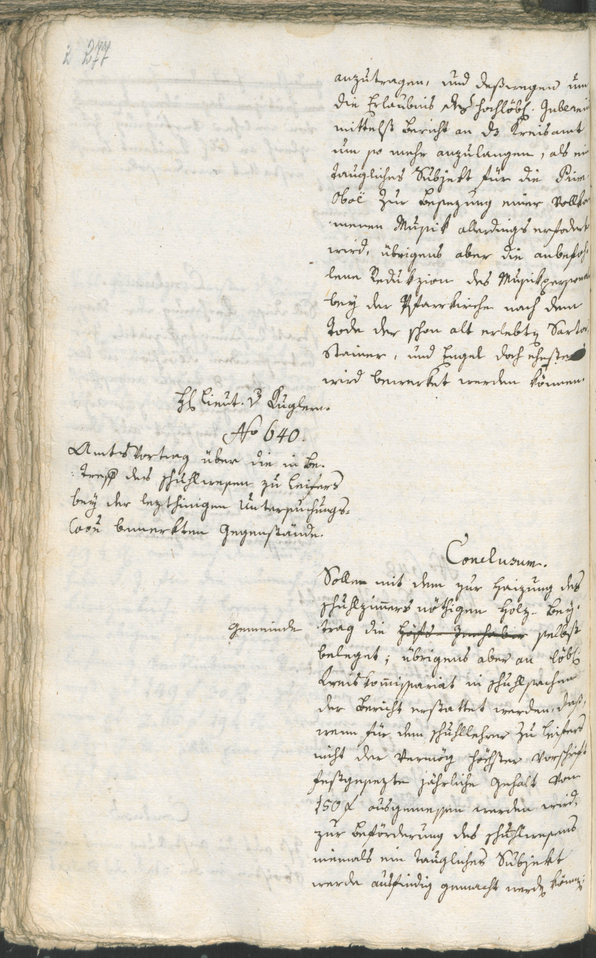 2 277
anzutragen, und deßwegen um
die Erlaubnis des hochlöbl. Guberni
mittelst Bericht an ds Kreisamt
um so mehr anzulangen, als ein
taugliches Subjekt für die Prim
Oboe zur Besezung einer vollko
menen Musik allerdings erfodert
wird, übrigens aber die anbefoh
lene Redukzion des Musikpersonn
bey der Pfarrkirche nach dem
Tode der schon alt erlebtn Sarto
Stainer, und Engel doch ehestens
wird bewerket werden können.
H Lieut. v Kugler.
No 640.
Amtsvortrag über die in Be-
treff des Schuhlwesen zu Leifers
bey der lezthinigen Untersuchungs-
Coon bemerkten Gegenstände.
Conclusum.
Solle mit dem zur Haizung des
Schuhlzimmers nöthigen Holz-Bey-
Gemeinde
trag die Höfs Innhaber selbst
beleget; übrigens aber an löbl.
Kreiskommissariat in Schuhlsachen
der Bericht erstattet werden, daß,
wenn für dem Schuhllehrer zu Leifers
nicht der vermög höchster Vorschrift
festgesezte jährliche Gehalt von
150 f ausgemessen werden wird,
zur Beförderung des Schuhlwesens
niemals ein taugliches Subjekt
werde ausfindig gemacht werdn können;